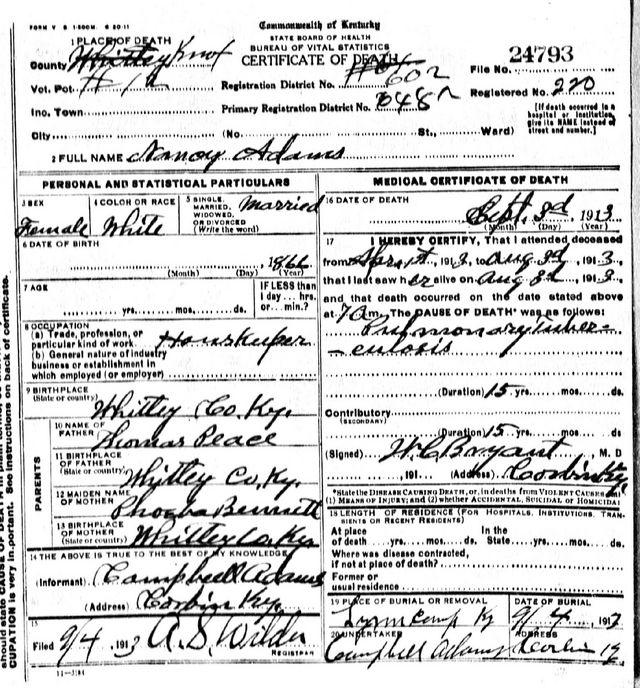 FORM V S 1-500M. 6 20-11
Commonwealth of Kentucky
STATE BOARD OF HEALTH
BUREAU OF VITAL STATISTICS
CERTIFICATE OF DEATH
1 PLACE OF DEATH
County Whitley Knox
Vot. Pct.
Ino. Town
City (No. St., Ward)
Registration District No. 602
Primary Registration District No.
File No. 24793
Registered No. 220
[If death occurred in a
hospital or institution,
give its NAME instead of
street and number.]
2 FULL NAME Nancy Adams
PERSONAL AND STATISTICAL PARTICULARS
3 SEX
Female
4 COLOR OR RACE
White
5 SINGLE,
MARRIED,
WIDOWED,
OR DIVORCED
(Write the word)
Married
6 DATE OF BIRTH
1866
(Month) (Day) (Year)
7 AGE
yrs. mos. ds.
IF LESS than
1 day... hrs.
or... min.?
8 OCCUPATION
(a) Trade, profession, or
particular kind of work Housekeeper
(b) General nature of industry
business or establishment in
which employed (or employer)
9 BIRTHPLACE
(State or country)
Whitley Co. Ky.
PARENTS
10 NAME OF
FATHER
Thomas Peace
11 BIRTHPLACE
OF FATHER
(State or country)
Whitley Co, Ky.
12 MAIDEN NAME
OF MOTHER
Phoeba Bennett
13 BIRTHPLACE
OF MOTHER
(State or country)
Whitley Co Ky
14 THE ABOVE IS TRUE TO THE BEST OF MY KNOWLEDGE
(Informant) Campbell Adams
(Address) Corbin Ky.
15
Filed 9/4 1913 A. S. Wilder
REGISTRAR
11-3184
MEDICAL CERTIFICATE OF DEATH
16 DATE OF DEATH
Sept. 3d 1913
(Month) (Day) (Year)
17 I HEREBY CERTIFY, That I attended deceased
from 1st, 1913, to Aug 3d 1913.
that I last saw her alive on Aug 3d 1913
and that death occurred on the date stated above
at 7 am. The CAUSE OF DEATH* was as follows:
Pulmonary tuber-
culosis
(Duration) 15 yrs. mos. ds.
Contributory
(SECONDARY)
(Duration) 15 yrs. mos. ds.
(Signed) W. C Bryant, M. D
, 191 (Address) Corbin Ky
*State the DISEASE CAUSING DEATH, or, in deaths from VIOLENT CAUSES state
(1) MEANS OF INJURY; and (2) whether ACCIDENTAL, SUICIDAL or HOMICIDAL
18 LENGTH OF RESIDENCE (FOR HOSPITALS, INSTITUTIONS, TRAN-
SIENTS OR RECENT RESIDENTS)
At place In the
of death yrs. mos. ds. State yrs. mos. ds.
Where was disease contracted,
if not at place of death?
Former or
usual residence
19 PLACE OF BURIAL OR REMOVAL
Lynn Camp Ky
DATE OF BURIAL
9/4, 1913
20 UNDERTAKER
Campbell Adams
ADDRESS
Corbin Ky
should state CAUSE OF DEATH
CUPATION is very important. See instructions on back of certificate.